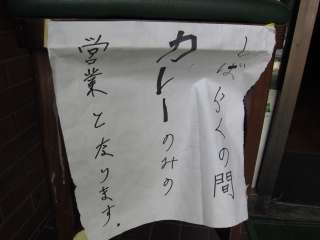 しばらくの間
カレーのみの
営業となります。